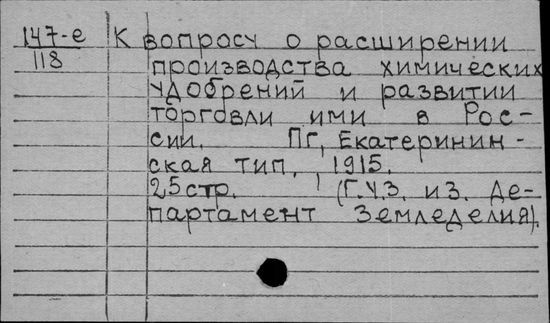 147-е К вопросу о расширении
118 производства химических
удобрений и развитии
торговли ими в Рос-
сии. ПГ, Екатеринин-
ская тип., 1915.
25стр. (Г.У.З. и З. Де-
партамент Земледелия).